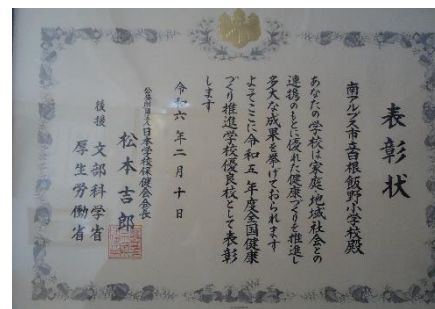 表彰状
南アルプス市立白根飯野小学校殿
あなたの学校は家庭、地域社会との
連携のもとに優れた健康づくりを推進し
多大な成果を挙げておられます
よってここに令和五年度全国健康
づくり推進学校優良校として表彰
します
令和六年二月十日
公益財団法人日本学校保健会会長
松本吉郎
後援 文部科学省
厚生労働省